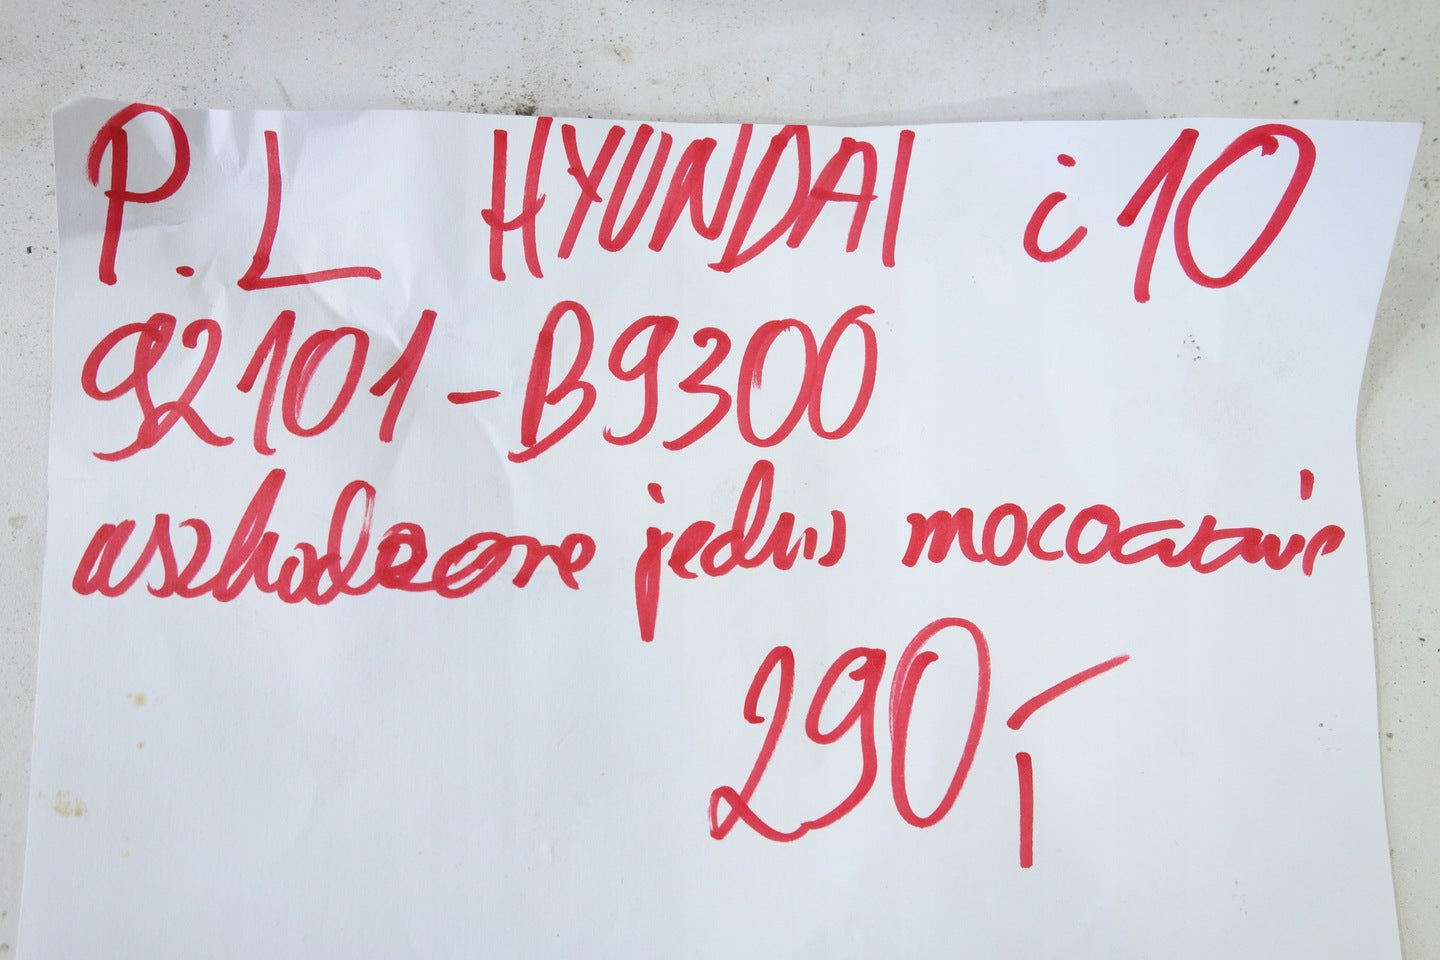 P. L HYUNDAI i10
92101-B9300
uszkodzone jedno mocowanie
290,-